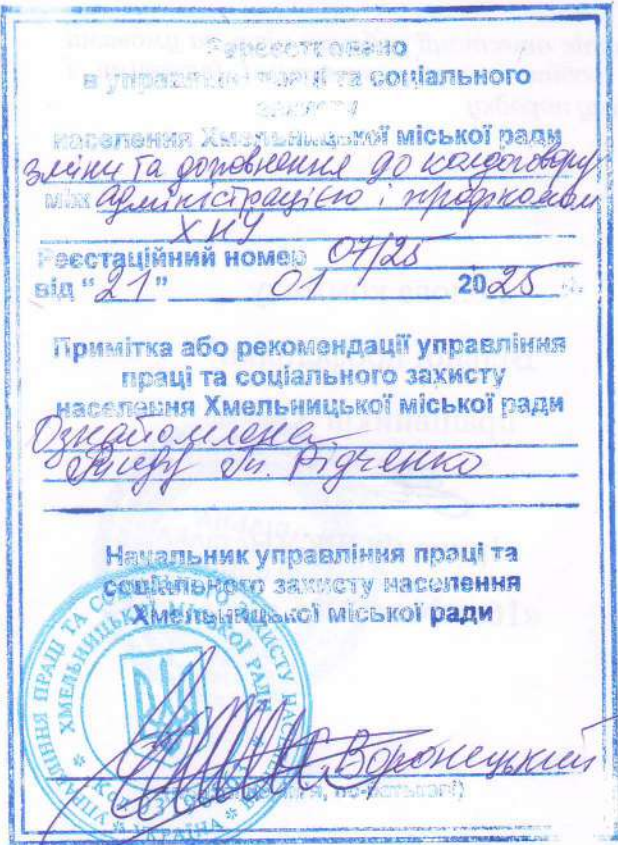 Зареєстровано
в управлінні праці та соціального
захисту
населення Хмельницької міської ради
зміни та доповнення до колдоговору
між адміністрацією і профкомом
ХНУ
Реєстаційний номер 07/25
від “21” 01 2025 р.
Примітка або рекомендації управління
праці та соціального захисту
населення Хмельницької міської ради
Ознайомлена
Гл. Рідченко
Начальник управління праці та
соціального захисту населення
Хмельницької міської ради
Воронецький
по-батькові)
УПРАВЛІННЯ ПРАЦІ ТА СОЦІАЛЬНОГО ЗАХИСТУ НАСЕЛЕННЯ
ХМЕЛЬНИЦЬКОЇ МІСЬКОЇ РАДИ
УКРАЇНА